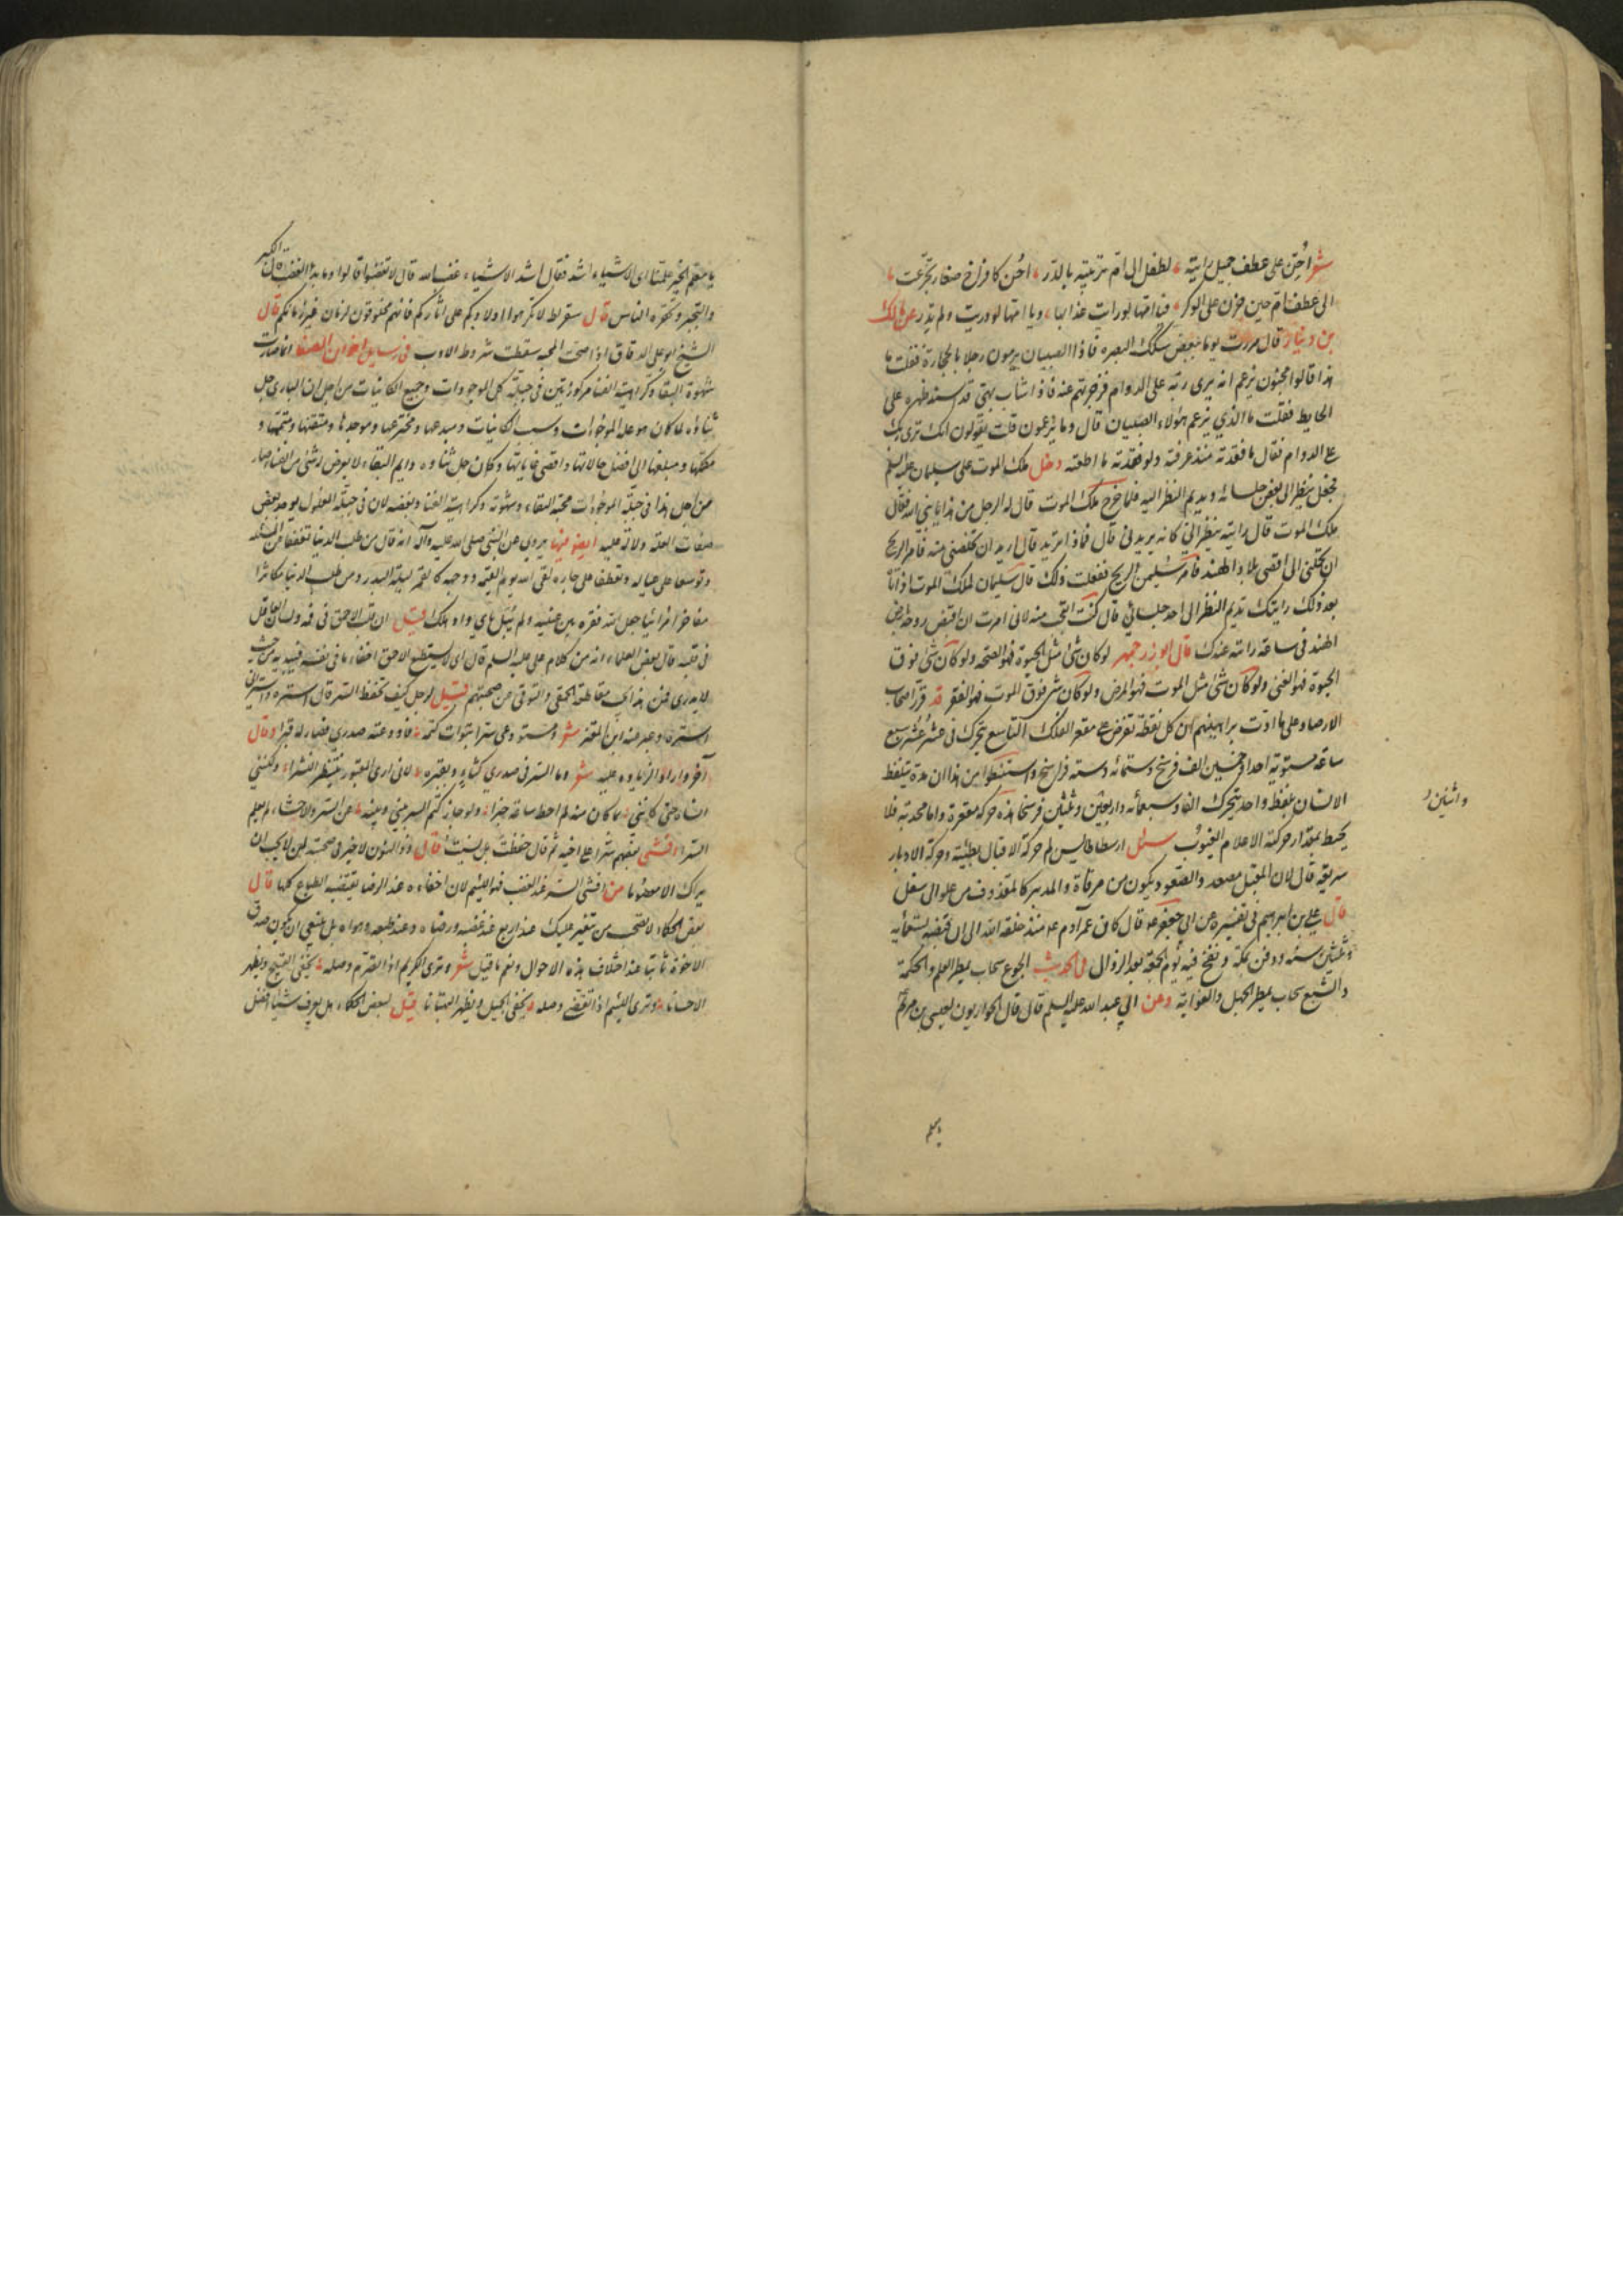 شعر احن على عطف جميل رايته لطفل الى ام تربيه بالدر احن كافراخ صغار تجزعت
الى عطف ام حين حزن على الوكر فيا امها لو رايت عذابها ويا امها لو دريت ولم تدر عن مالك
بن دينار قال مررت يوما ببعض سكك البصره فاذا الصبيان يرمون رجلا بالحجارة فقلت ما
هذا قالوا مجنون يزعم انه يرى ربه على الدوام فزجرتهم عنه فاذا شاب بهي قد سند ظهره على
الحايط فقلت ما الذي يزعم هؤلاء الصبيان قال وما يزعمون قلت يقولون انك ترى ربك
على الدوام فقال ما فقدته منذ عرفته ولو فقدته ما اطعته دخل ملك الموت على سليمان عليه السلم
فجعل ينظر الى بعض جلسائه ويديم النظر اليه فلما خرج ملك الموت قال له الرجل من هذا يا نبي الله فقال
ملك الموت قال رايته ينظر الي كانه يريدني قال فماذا تريد قال اريد ان تخلصني منه فامر الريح
ان تحملني الى اقصى بلاد الهند فامر سليمن الريح ففعلت ذلك قال سليمان لملك الموت اذ اتا
بعد ذلك رايتك تديم النظر الى احد جلسائي قال كنت اتعجب منه لاني امرت ان اقبض روحه بارض
الهند في ساعة رايته عندك قال ابوزرجمهر لو كان شئ مثل الحيوة فهو الصحه ولو كان شئ فوق
الحيوة فهو الغنى ولو كان شئ مثل الموت فهو المرض ولو كان شئ فوق الموت فهو الفقر قد قرر اصحاب
الارصاد على ما ادت براهينهم ان كل نقطة تفرض على مقعر الفلك التاسع يتحرك في عشر عشر ربع
ساعة مستوية احدا وخمسين الف فرسخ وستمائه وسته فراسخ واستنبطوا من هذا ان مدة يتلفظ
الانسان بلفظ واحد يتحرك الفا وسبعمائه واربعين وثلثين فرسخا هذه حركة مقعره واما محدبه فلا
واثنين
يحيط بمقدار حركته الا علام الغيوب سئل ارسطاطاليس لم حركة الاقبال بطيئة وحركة الادبار
سريعه قال لان المقبل مصعد والصعود يكون من مرقاة والمدبر كالمقذوف من علو الى سفل
قال علي بن ابرهيم في تفسيره عن ابي جعفر عه قال كان عمر آدم عه منذ خلقه الله الى ان قبضه تسعمائه
وثلثين سنه ودفن بمكة ونفخ فيه يوم الجمعة بعد الزوال في الحديث الجوع سحاب يمطر العلم والحكمة
والشبع سحاب يمطر الجهل والغواية وعن ابي عبد الله عليه السلم قال قال الحواريون لعيسى بن مريم
يا معلم الخير علمنا اي الاشياء اشد فقال اشد الاشياء غضب الله قال لا تغضبوا قالوا وما بدء الغضب قال الكبر
والتجبر ومحقره الناس قال سقراط لا تكرهوا اولادكم على اثاركم فانهم مخلوقون لزمان غير زمانكم قال
الشيخ ابو علي الدقاق اذا صحت المحبه سقطت شروط الادب في رسايل اخوان الصفا انما صارت
شهوة البقاء وكراهية الفناء مركوزتين في جبلة كل الموجودات وجميع الكاينات من اجل ان الباري جل
ثناؤه لما كان هو علة الموجودات وسبب الكاينات ومبدعها ومخترعها وموجدها ومتقنها ومتممها و
مكملها ومبلغها الى افضل حالاتها واقصى غاياتها وكان جل ثناؤه دايم البقاء لا يعرض له شئ من الفناء صار
من اجل هذا في جبلة الموجودات محبة البقاء وشهوته وكراهية الفناء وبغضه لان في جبلة المعلول يوجد بعض
صفات العلة ودلالة عليه ايضا منها يروى عن النبي صلى الله عليه وآله انه قال من طلب الدنيا تعففا عن المسئلة
وتوسعا على عياله وتعطفا على جاره لقى الله يوم القيمه ووجهه كالقمر ليلة البدر ومن طلب الدنيا مكاثرا
مفاخرا مرائيا جعل الله فقره بين عينيه ولم يبال باي واد هلك قيل ان قلب الاحمق في فيه ولسان العاقل
في قلبه قال بعض العلماء انه من كلام علي عليه السلم قال اي لا يستطيع الاحمق اخفاء ما في نفسه فيبديه من حيث
لا يدرى فمن هذا يجب مقاطعة الحمقى والتوقي من صحبتهم قيل لرجل كيف تحفظ السر قال استره واستر اني
استره وعبر عنه ابن المعتز شعر ومستودعي سرا تبوات كتمه فاودعته صدري فصار له قبرا وقال
آخر واراد الزيادة عليه شعر وما السر في صدري كثاو بقبره لاني ارى المقبور ينتظر النشرا ولكنني
انساه حتى كانني بما كان منه لم احط ساعة خبرا ولو جاز كتم السر بيني وبينه عن السر والاحشاء لم يعلم
السرا افشى بعضهم سرا على اخيه ثم قال حفظت بل نسيت قال ذو النون لا خير في صحبة من لا يحب ان
يراك الا معصوما من افشى السر عند الغضب فهو اللئيم لان اخفاءه عند الرضا يقتضيه الطباع كلها قال
بعض الحكماء لا تصحب من يتغير عليك عند اربع عند غضبه ورضاه وعند طمعه وهواه بل ينبغي ان يكون صدق
الاخوة ثابتا عند اختلاف هذه الاحوال ونعم ما قيل شعر وترى الكريم اذا تصرم وصله يخفى القبيح ويظهر
الاحسانا وترى اللئيم اذا تقضى وصله يخفى الجميل ويظهر البهتانا قيل لبعض الحكماء هل يعرف شيئا افضل